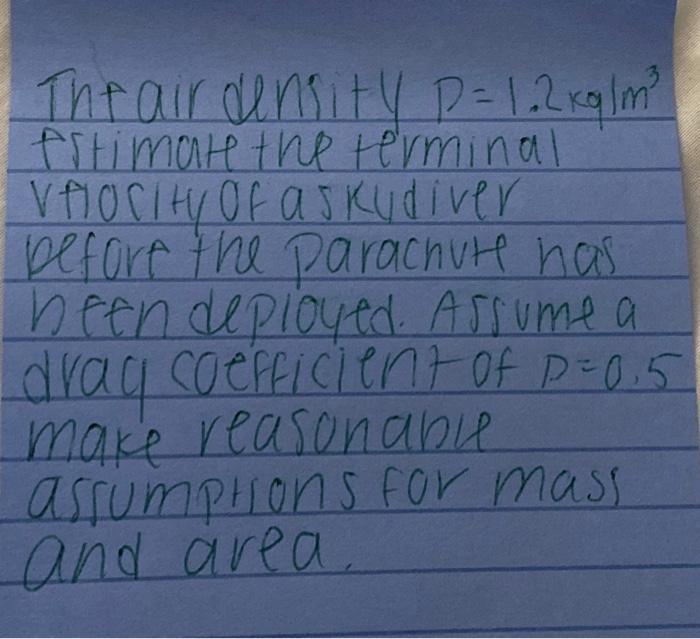 The air density D=1.2kg/m³
estimate the terminal
velocity of a skydiver
before the parachute has
been deployed. Assume a
drag coefficient of D=0.5
make reasonable
assumptions for mass
and area.